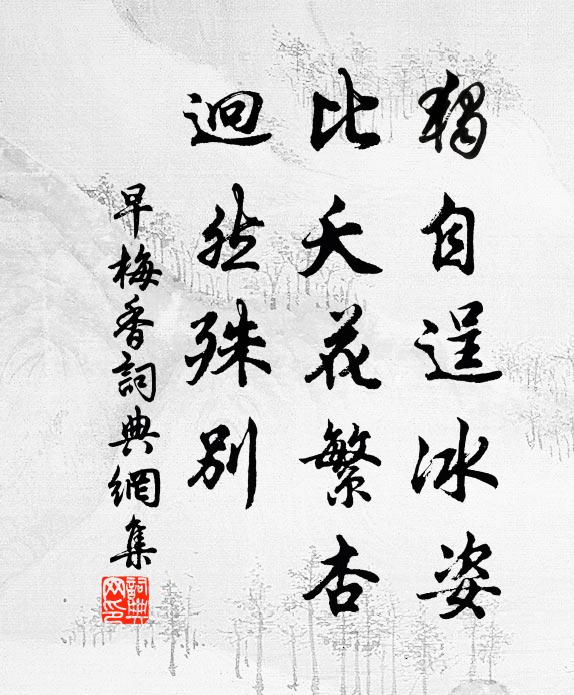 獨自逞冰姿
比夭花繁杏
迥然殊別
早梅香詞典網集
詞典網印